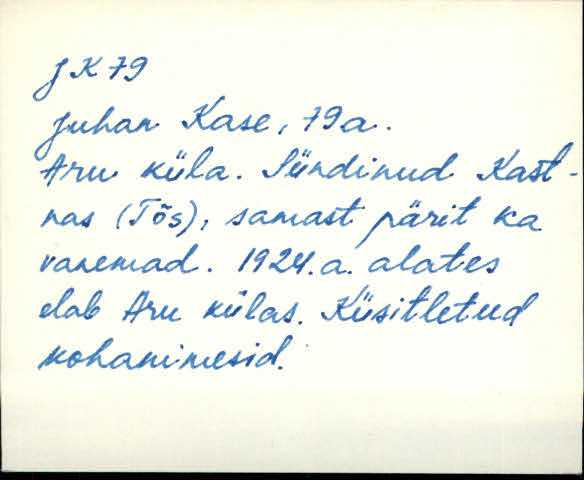 JK79
Juhan Kase, 79a.
Aru küla. Sündinud Kast-
nas (Tõs), samast pärit ka
vanemad. 1924.a. alates
elab Aru külas. Küsitletud
kohanimesid.